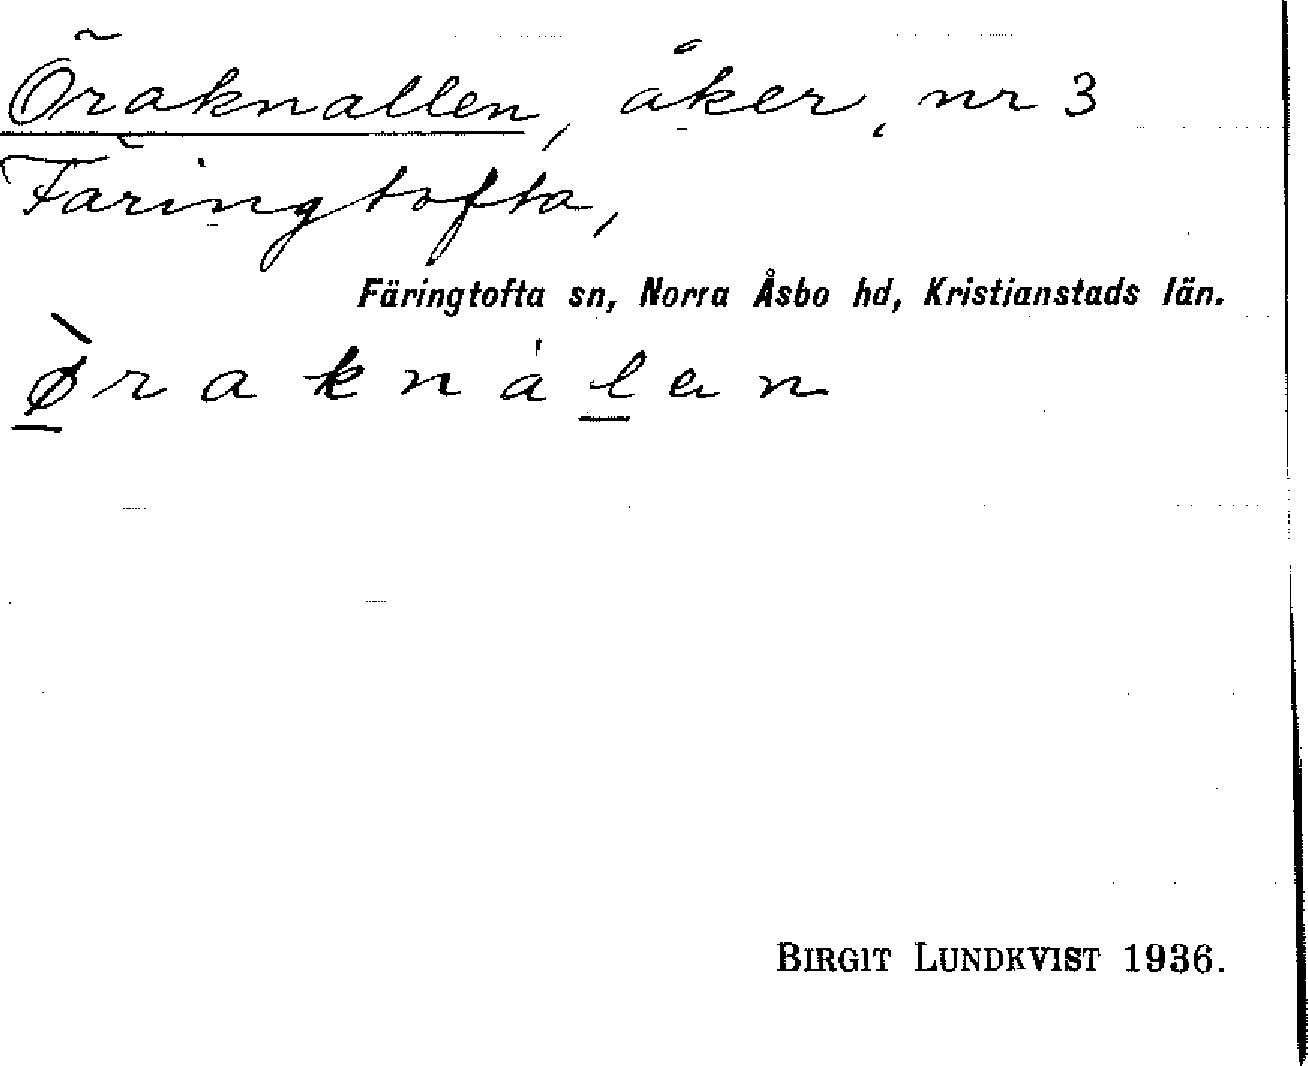 Öraknallen, åker, nr 3
Färingtofta,
Färingtofta sn, Norra Åsbo hd, Kristianstads län.
ø̱̀ r a k n á l̠ e n
BIRGIT LUNDKVIST 1936.